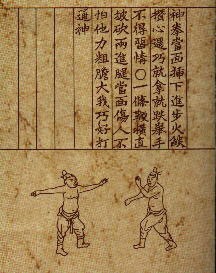 神拳當面插下進步火燄
攢心遇巧就拿就跌舉手
不得留情〇一條鞭橫直
披砍兩進腿當面傷人不
怕他力粗膽大我巧好打
通神